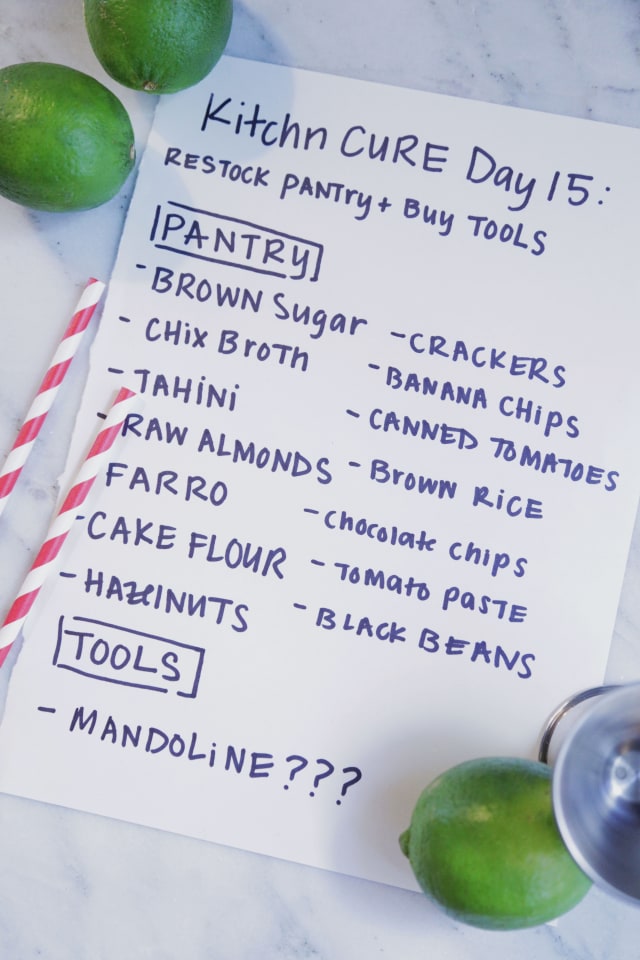 Kitchn CURE Day 15:
RESTOCK PANTry + Buy TOOLS
PANTRY
- BROWN Sugar
- CHix BroTH
- TAHiNi
- RAW ALMONDS
- FARRO
- CAKE FLOUR
- HAZELNUTS
- CRACKERS
- BANANA CHiPS
- CANNED TOMATOES
- Brown RiCE
- Chocolate Chips
- TOMATO PASTE
- BLACK BEANS
TOOLS
- MANDOLiNE???